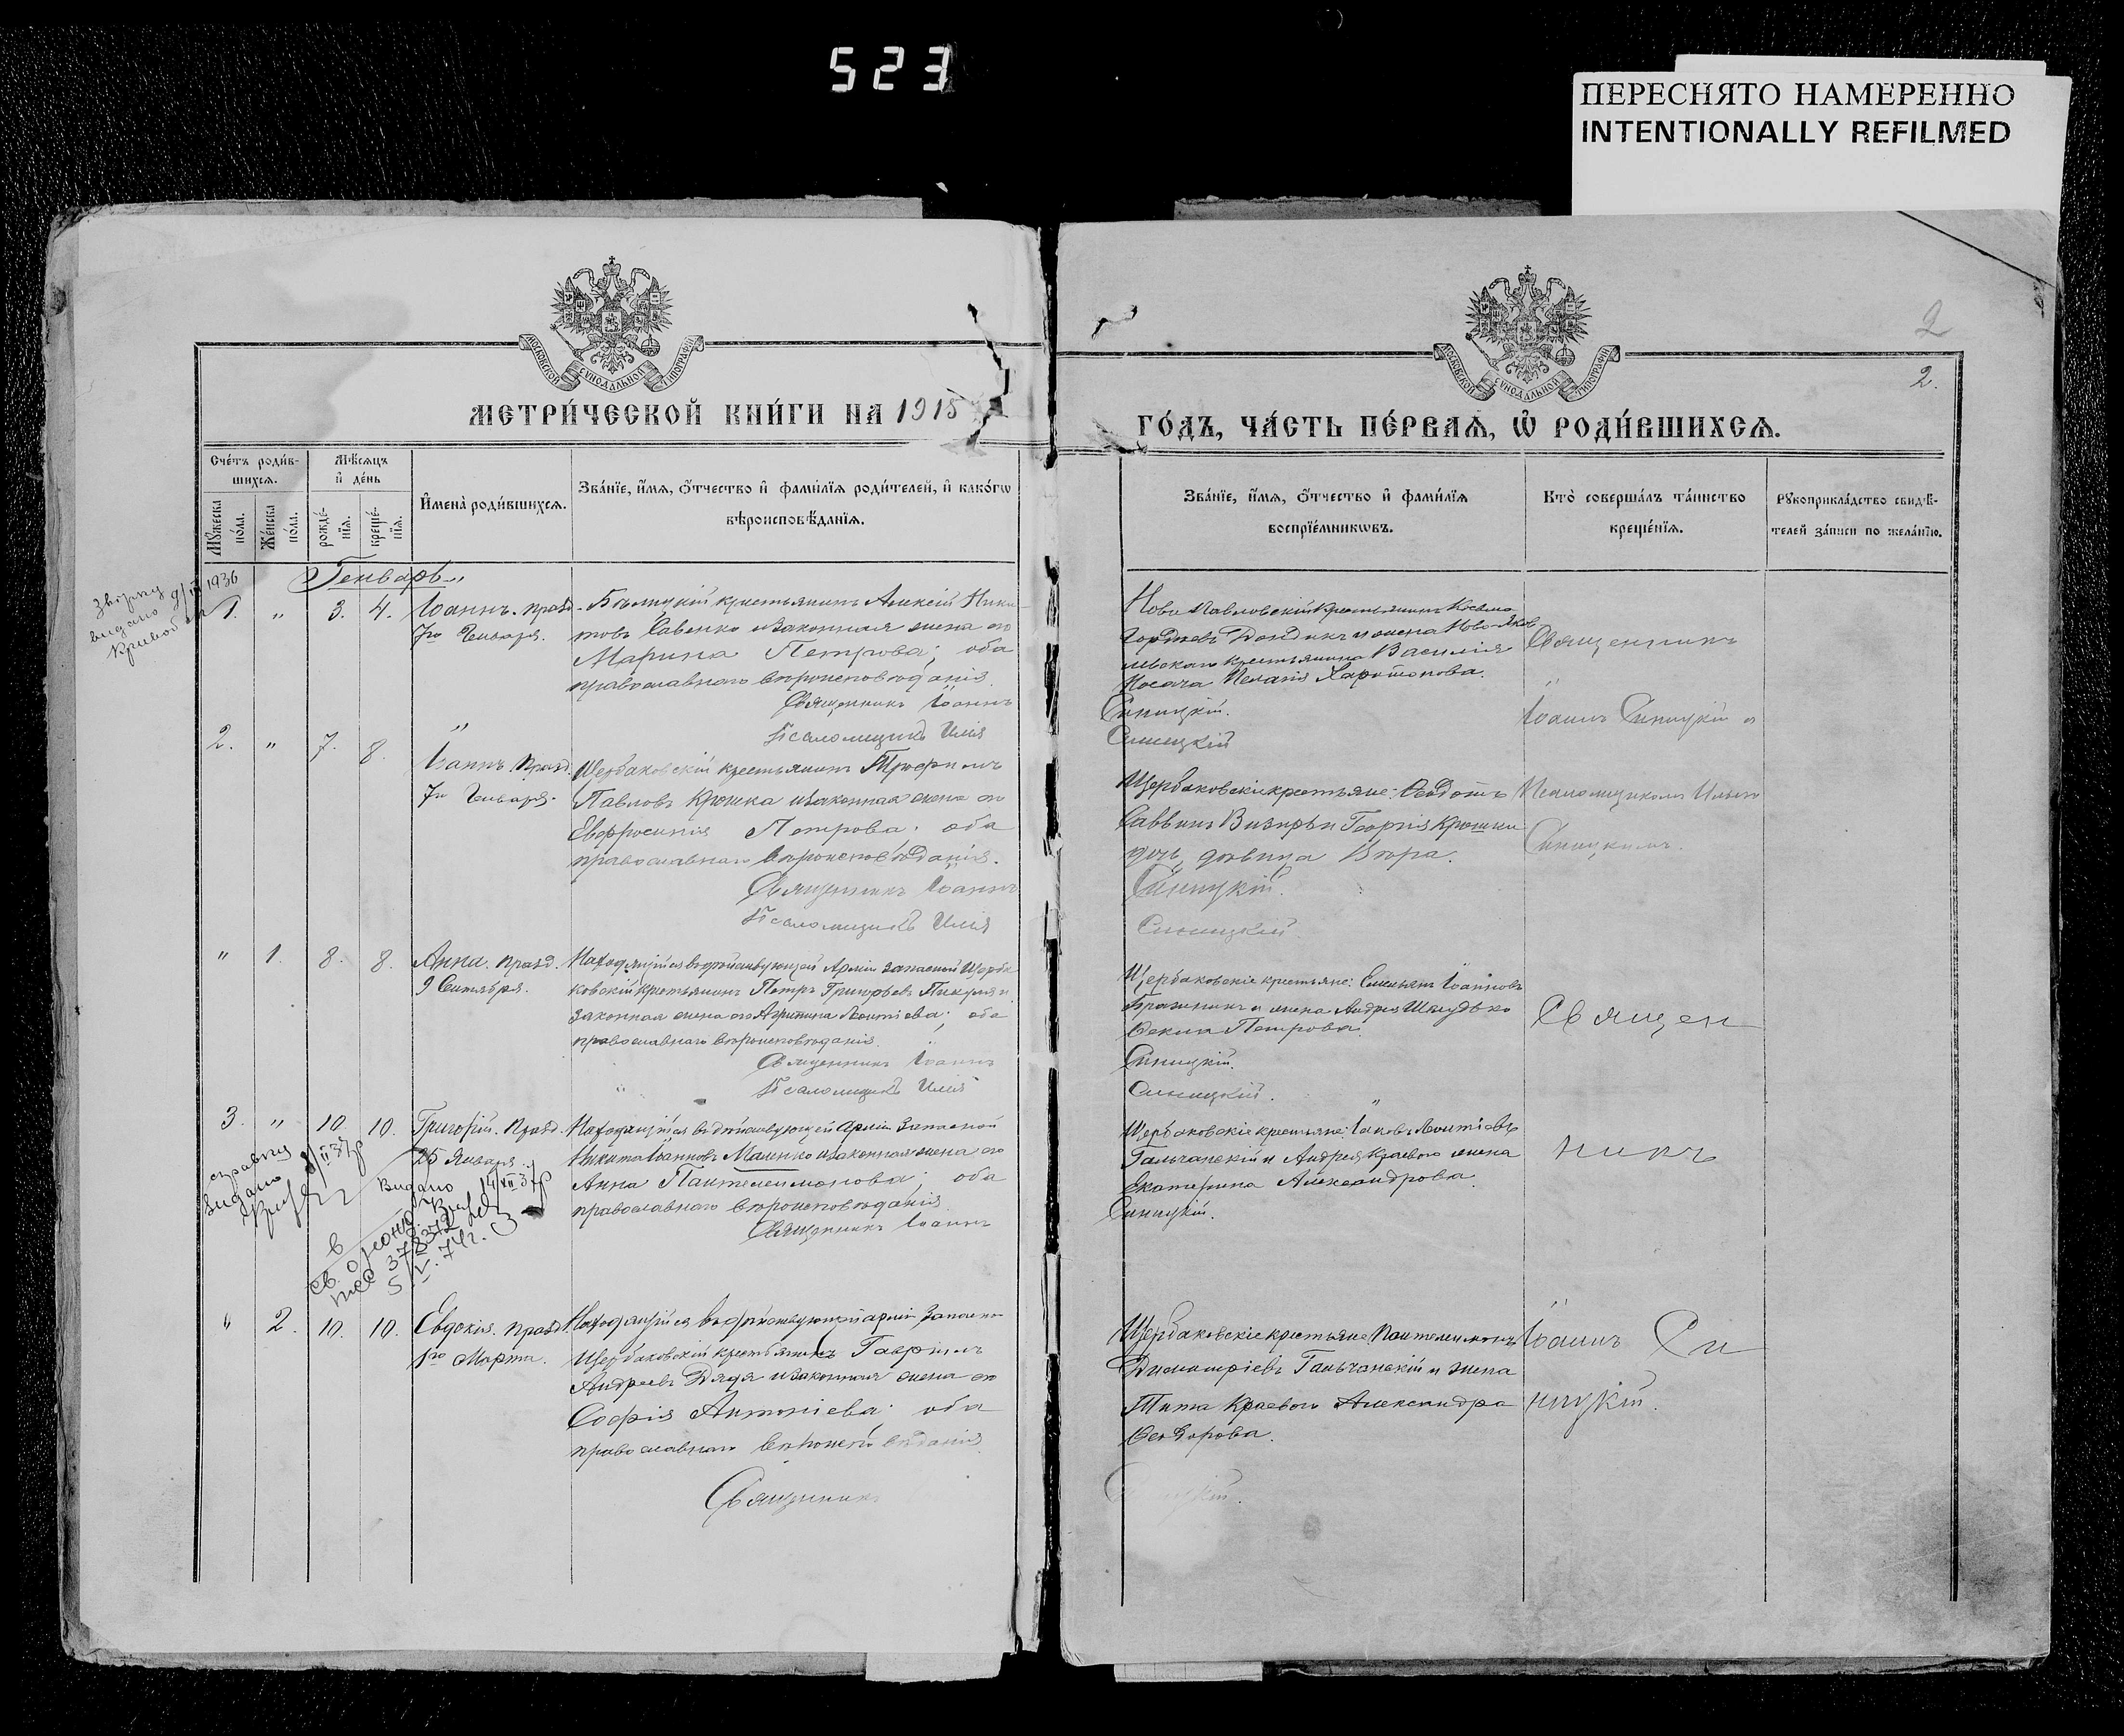 523
ПЕРЕСНЯТО НАМЕРЕННО
INTENTIONALLY REFILMED
2
2.
МОСКОВСКОЙ СѴНОДАЛЬНОЙ ТИПОГРАФІИ
МОСКОВСКОЙ СѴНОДАЛЬНОЙ ТИПОГРАФІИ
МЕТРИ́ЧЕСКОЙ КНИ́ГИ НА 1915
ГО́ДЪ, ЧА́СТЬ ПЕ́РВАѦ, Ѽ РОДИ́ВШИХСѦ.
Сче́тъ роди́в-
шихсѧ.
Мѣ́сѧцъ
и҆ де́нь
Мꙋ́жеска
по́ла.
Же́нска
по́ла.
рожде́-
нїѧ.
креще́-
нїѧ.
И҆мена̀ роди́вшихсѧ.
Зва́нїе, и҆́мѧ, ѻ҆́тчество и҆ фами́лїѧ роди́телей, и҆ како́гѡ
вѣроисповѣ́данїѧ.
Зва́нїе, и҆́мѧ, ѻ҆́тчество и҆ фами́лїѧ
воспрїе́мникѡвъ.
Кто̀ соверша́лъ та́инство
креще́нїѧ.
Рꙋкоприкла́дство свидѣ́-
телей за́писи по жела́нїю.
Генварь
1936
видано
1. " 3. 4.
Іоаннъ. празд.
7го Генваря.
крестьянинъ Алексій Ники-
товъ Савенко и законная жена его
Марина Петрова; оба
православнаго вѣроисповѣданія.
Священникъ Іоаннъ
Псаломщикъ Илія
Ново Павловскій крестьянинъ Косьма
жена Ново-Яков-
левскаго крестьянина Василія
Носача Пелагія Харитонова.
Синицкій.
Синицкій
Священникъ
Іоаннъ Синицкій и
2. " 7. 8.
Іоаннъ. празд.
7го Генваря.
Щербаковскій крестьянинъ Трофимъ
Павловъ Крошка и законная жена его
Евфросинія Петрова; оба
православнаго вѣроисповѣданія.
Священникъ Іоаннъ
Псаломщикъ Илія
Щербаковскіе крестьяне: Феодотъ
Саввинъ Визирь и Георгія Крошки
дочь, дѣвица Вѣра.
Синицкій.
Синицкій
Псаломщикомъ Иліею
Синицкимъ.
" 1. 8. 8.
Анна. празд.
9 Сентября.
Находящійся въ дѣйствующей Арміи запасной Щерба-
ковскій крестьянинъ Петръ Григорьевъ
законная жена его Агрипина Леонтіева; оба
православнаго вѣроисповѣданія.
Священникъ Іоаннъ
Псаломщикъ Илія
Щербаковскіе крестьяне: Емельянъ Іоанновъ
Бражникъ и жена Андрея
Фекла Петрова.
Синицкій.
Синицкій.
Священ
3. " 10. 10.
Григорій. Празд.
25 Января.
Находящійся въ дѣйствующей Арміи Запасной
Никита Іоанновъ Маленко и законная жена его
Анна Пантелеимонова; оба
православнаго вѣроисповѣданія
Священникъ Іоаннъ
Щербаковскіе крестьяне: Іаковъ Леонтіевъ
Гальчанскій и Андрея Краевого жена
Екатерина Александрова.
Синицкій.
никъ
справка
видано
Видано
5.V.74г.
" 2. 10. 10.
Евдокія. празд.
1го Марта.
Находящійся въ дѣйствующей арміи Запасно
Щербаковскій крестьянинъ Гавріилъ
Андреевъ Дядя и законная жена его
Софія Антоніева; оба
православнаго вѣроисповѣданія.
Священникъ
Щербаковскіе крестьяне: Пантелеимонъ
Димитріевъ Гальчанскій и жена
Тита Краевого Александра
Феодорова.
Іоаннъ Си
ницкій.